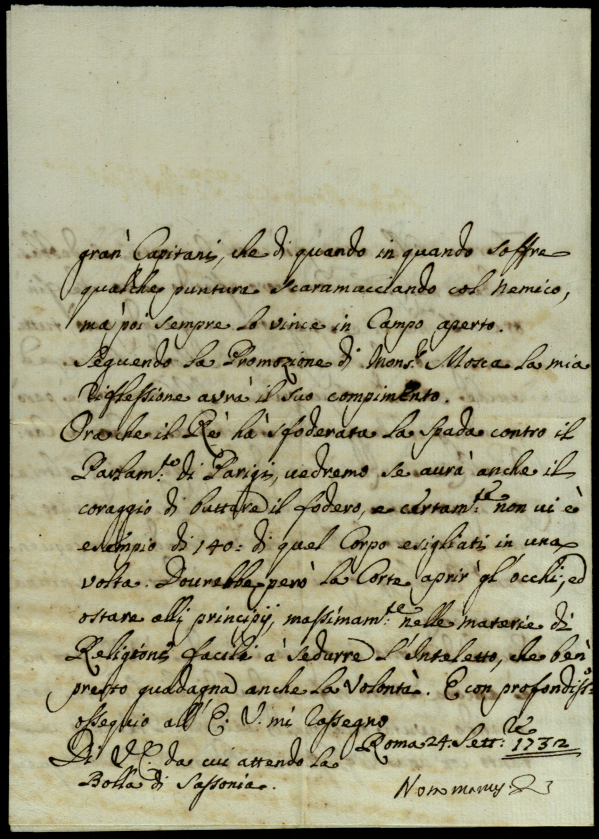 gran' Capitani, che di quando in quando soffre
qualche puntura scaramacciando col Nemico,
ma poi sempre lo vince in Campo aperto.
Seguendo la Promozione di Mons.r Mosca la mia
riflessione avrà il suo compimento.
Ora che il Rè hà sfoderata la spada contro il
Parlam.to di Parigi, vedremo se aurà anche il
coraggio di buttare il fodero, e certam.te non vi è
esempio di 140: di quel Corpo esigliati in una
volta. Dourebbe però la Corte aprir' gl'occhi, ed
ostare alli principij, massimam.te nelle materie di
Religione facili à sedurre l'Inteletto, che ben'
presto guadagna anche la Volontà. E con profondiss.o
ossequio all'E. V. mi rassegno
Di V.E. da cui attendo la Roma 24. Sett.re 1732
Bolla di Sassonia.